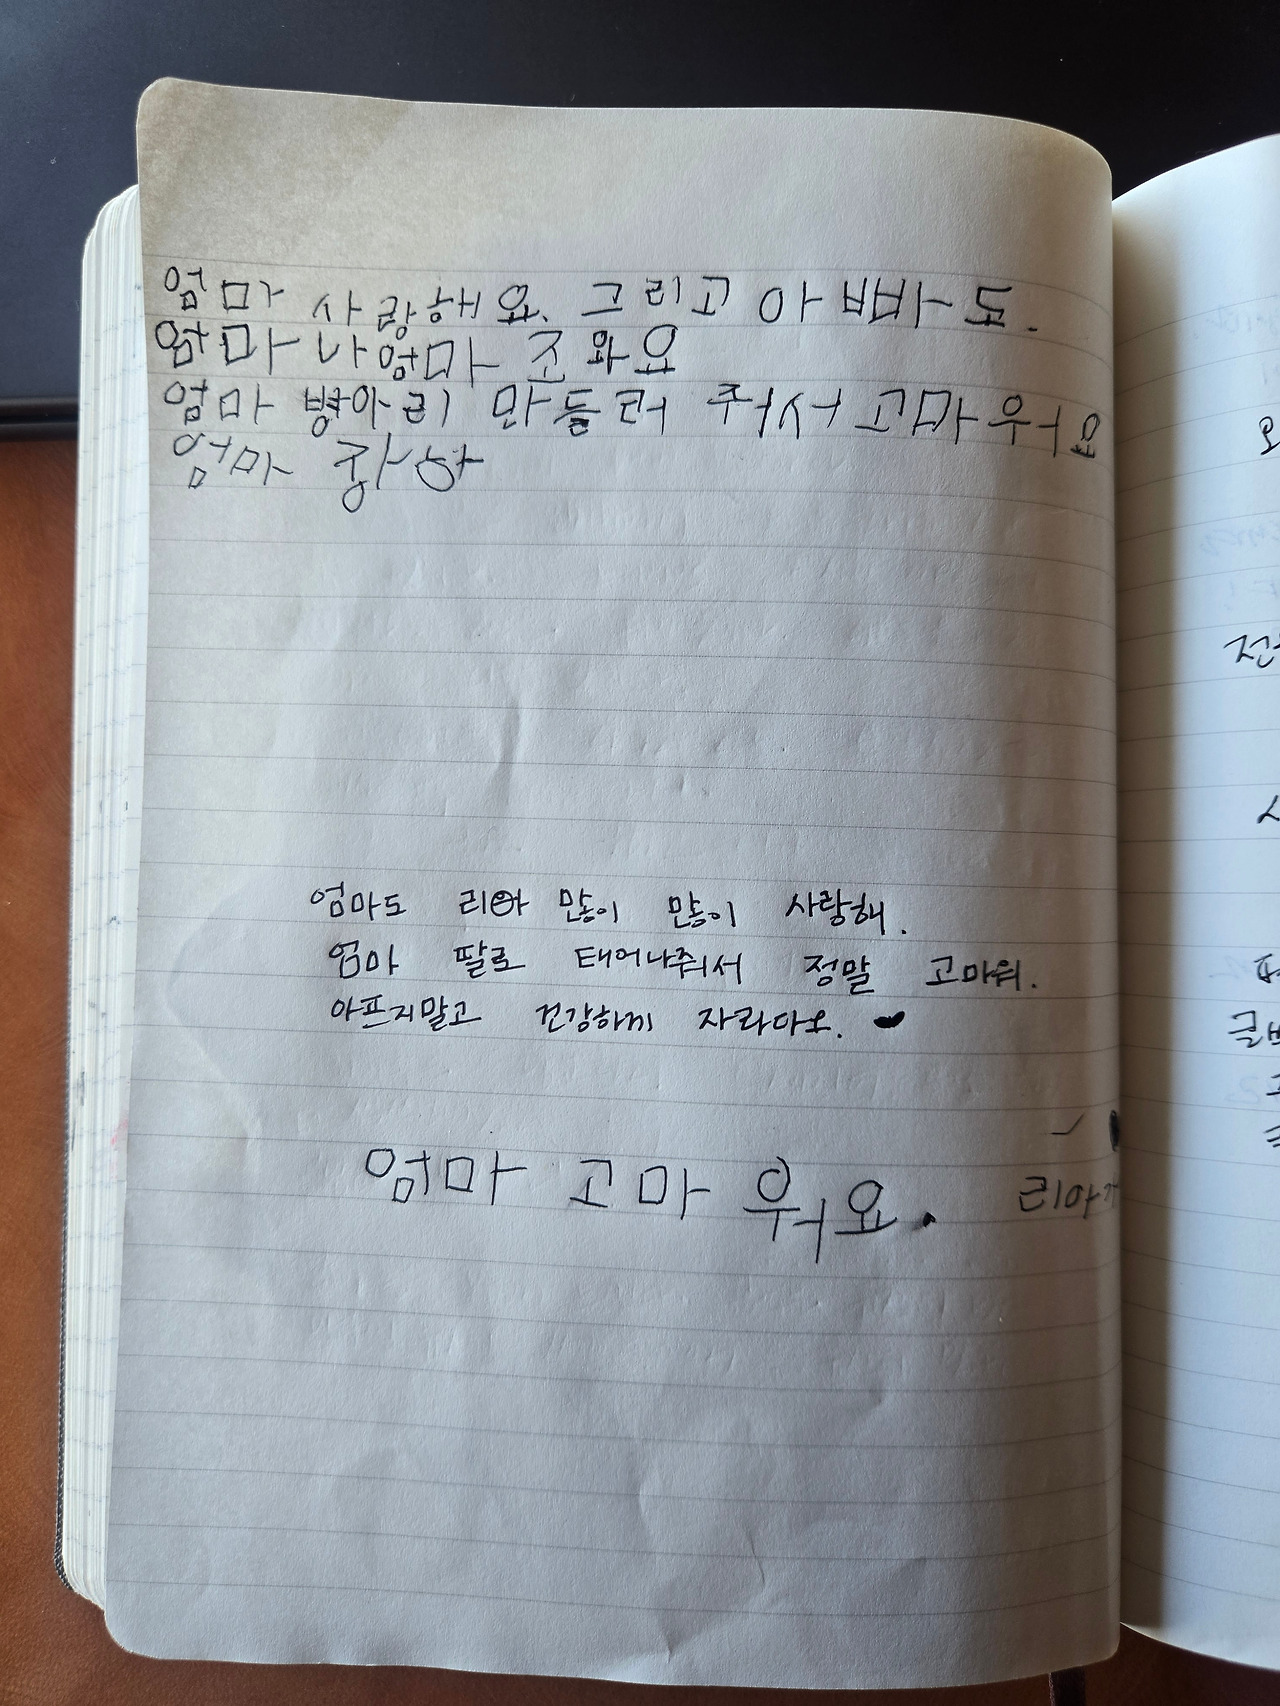 엄마 사랑해요. 그리고 아빠도.
엄마 나 엄마 조와요
엄마 병아리 만들러 줘서 고마우어요
엄마
엄마도 리아 많이 많이 사랑해.
엄마 딸로 태어나줘서 정말 고마워.
아프지말고 건강하게 자라다오. ♥
엄마 고마워요.
리아가